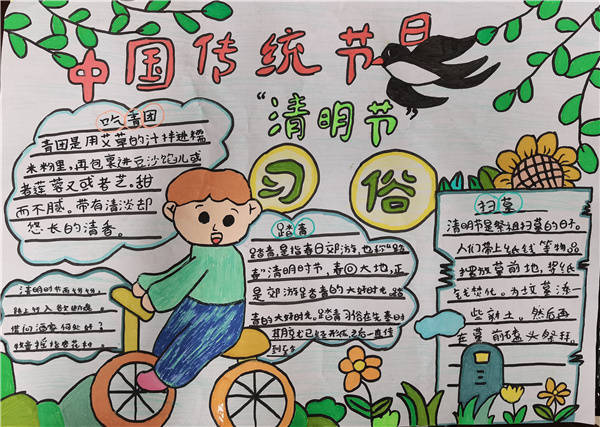 中国传统节日
“清明节
习俗
吃青团
青团是用艾草的汁拌进糯
米粉里，再包裹进豆沙馅儿或
者莲蓉又或者芝。甜
而不腻。带有清淡却
悠长的清香。
清明时节雨纷纷，
路上行人欲断魂。
借问酒家何处好？
牧童摇指杏花村。
踏青
踏青是指春日郊游，也称“踏
春”清明时节，春回大地，正
是郊游踏青的大好时光。踏
青的大好时光。踏青习俗在先秦时
期
扫墓
清明节是祭祖扫墓的日子。
人们带上纸钱等物品
摆放墓前地，
钱焚化。为坟墓添一
些新土。然后再
在墓前磕头祭拜。